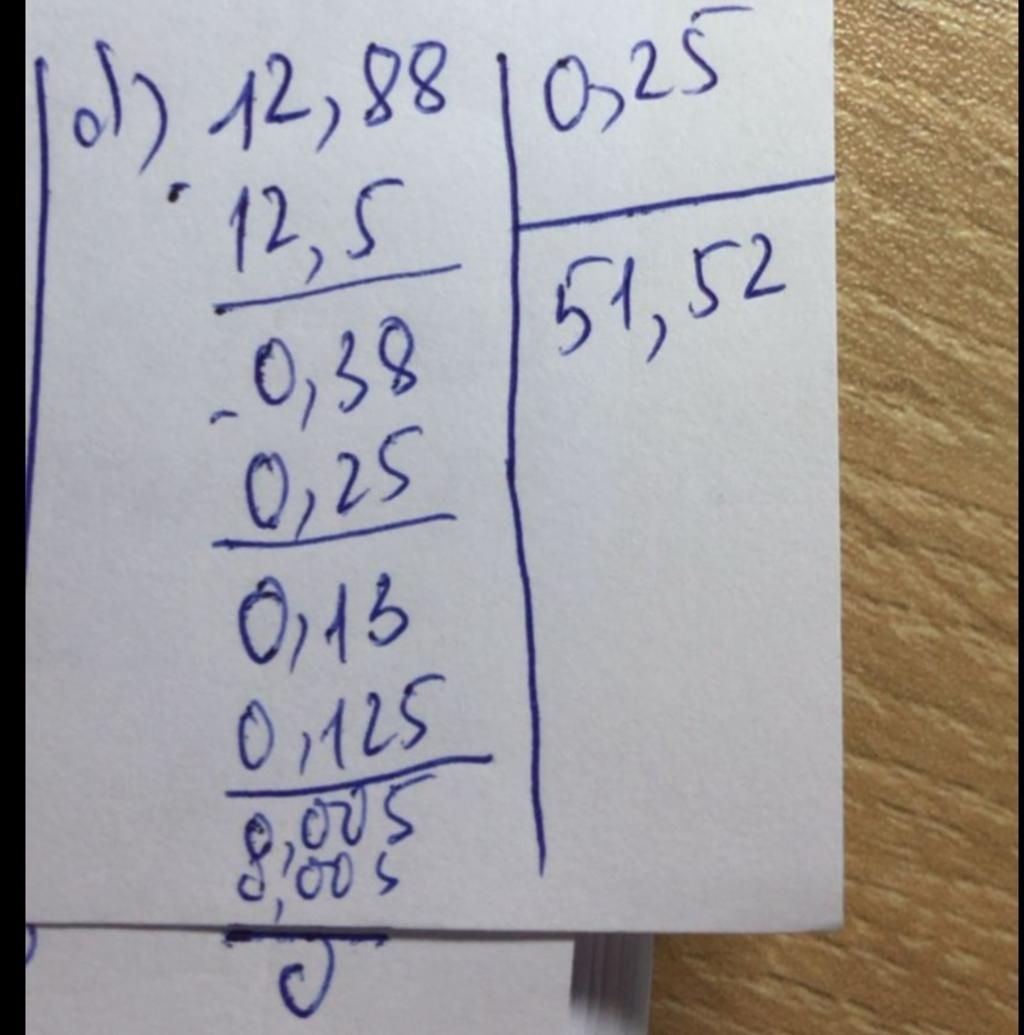 d) 12,88 | 0,25
12,5 | 51,52
0,38
- 0,25
0,13
0,125
0,005
0,005
0